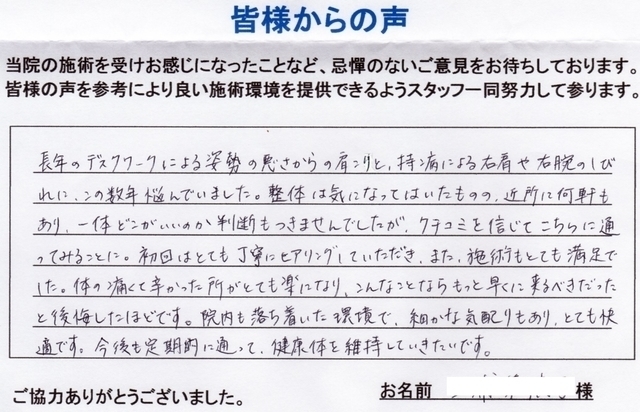 皆様からの声
当院の施術を受けお感じになったことなど、忌憚のないご意見をお待ちしております。
皆様の声を参考により良い施術環境を提供できるようスタッフ一同努力して参ります。
長年のデスクワークによる姿勢の悪さからの肩こりと、持病による右肩や右腕のしび
れに、この数年悩んでいました。整体は気になってはいたものの、近所に何軒も
あり、一体どこがいいのか判断もつきませんでしたが、クチコミを信じてこちらに通
ってみることに。初回はとても丁寧にヒアリングしていただき、また、施術もとても満足で
した。体の痛くて辛かった所がとても楽になり、こんなことならもっと早くに来るべきだった
と後悔したほどです。院内も落ち着いた環境で、細かな気配りもあり、とても快
適です。今後も定期的に通って、健康体を維持していきたいです。
ご協力ありがとうございました。
お名前 様